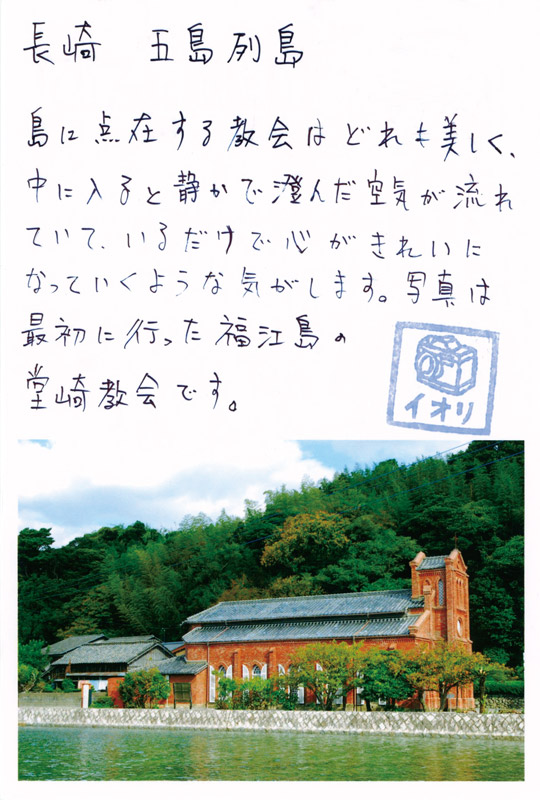 長崎 五島列島
島に点在する教会はどれも美しく、
中に入ると静かで澄んだ空気が流れ
ていて、いるだけで心がきれいに
なっていくような気がします。写真は
最初に行った福江島の
堂崎教会です。
イオリ